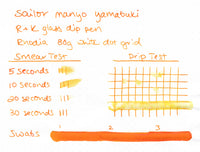 Sailor manyo yamabuki
R+K glass dip pen
Rhodia 80g white dot grid
Smear Test Drip Test
5 seconds
10 seconds
20 seconds
30 seconds
Swabs 1 2 3